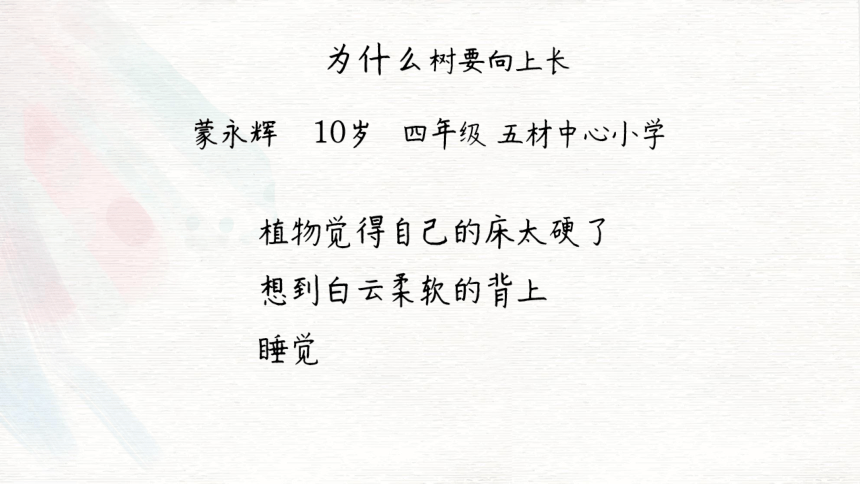 为什么树要向上长
蒙永辉 10岁 四年级 五材中心小学
植物觉得自己的床太硬了
想到白云柔软的背上
睡觉